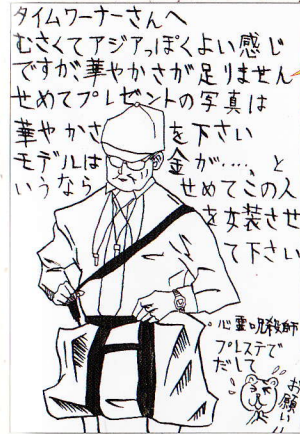 タイムワーナーさんへ
むさくてアジアっぽくよい感じ
ですが華やかさが足りません
せめてプレゼントの写真は
華やかさを下さい
モデルは金が‥‥、と
いうならせめてこの人
を女装させ
て下さい
心霊呪殺師
プレステで
だして
お願い!!